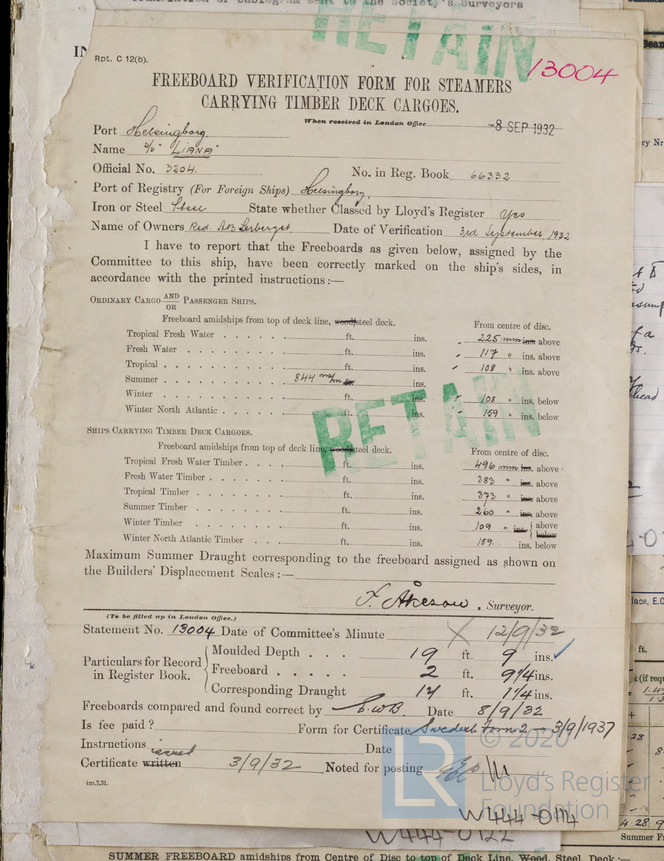 RETAIN
Rpt. C 12(b).
13004
FREEBOARD VERIFICATION FORM FOR STEAMERS
CARRYING TIMBER DECK CARGOES.
When received in London Office -8 SEP 1932
Port Helsingborg.
Name S/S "LIANA"
Official No. 3204. No. in Reg. Book 66332
Port of Registry (For Foreign Ships) Helsingborg.
Iron or Steel Steel State whether Classed by Lloyd's Register Yes
Name of Owners Red. AB Date of Verification 3rd September, 1932
I have to report that the Freeboards as given below, assigned by the
Committee to this ship, have been correctly marked on the ship's sides, in
accordance with the printed instructions:—
ORDINARY CARGO AND/OR PASSENGER SHIPS.
Freeboard amidships from top of deck line, wood, steel deck. From centre of disc.
Tropical Fresh Water ft. ins. 225 mm ins. above
Fresh Water ft. ins. 117 " ins. above
Tropical ft. ins. 108 " ins. above
Summer 844 m/m ft. ins.
Winter ft. ins. 108 " ins. below
Winter North Atlantic ft. ins. 159 " ins. below
RETAIN
SHIPS CARRYING TIMBER DECK CARGOES.
Freeboard amidships from top of deck line, wood, steel deck. From centre of disc.
Tropical Fresh Water Timber ft. ins. 496 mm ins. above
Fresh Water Timber ft. ins. 383 " ins. above
Tropical Timber ft. ins. 373 " ins. above
Summer Timber ft. ins. 260 " ins. above
Winter Timber ft. ins. 109 " ins. above below
Winter North Atlantic Timber ft. ins. 159. ins. below
Maximum Summer Draught corresponding to the freeboard assigned as shown on
the Builders' Displacement Scales:—
F. Åkeson, Surveyor.
(To be filled up in London Office.)
Statement No. 13004 Date of Committee's Minute X 12/9/32
Particulars for Record in Register Book.
Moulded Depth 19 ft. 9 ins.
Freeboard 2 ft. 9 1/4 ins.
Corresponding Draught 17 ft. 1 1/4 ins.
Freeboards compared and found correct by E.W.B. Date 8/9/32
Is fee paid? Form for Certificate Swedish Form 2 - 3/9/1937
Instructions Date
Certificate written issued 3/9/32 Noted for posting
4m.7.31.
© 2020
LR Lloyd's Register
Foundation
W444-0114
W444-0122
SUMMER FREEBOARD amidships from Centre of Disc to top of Deck Line, Wood, Steel Deck:—